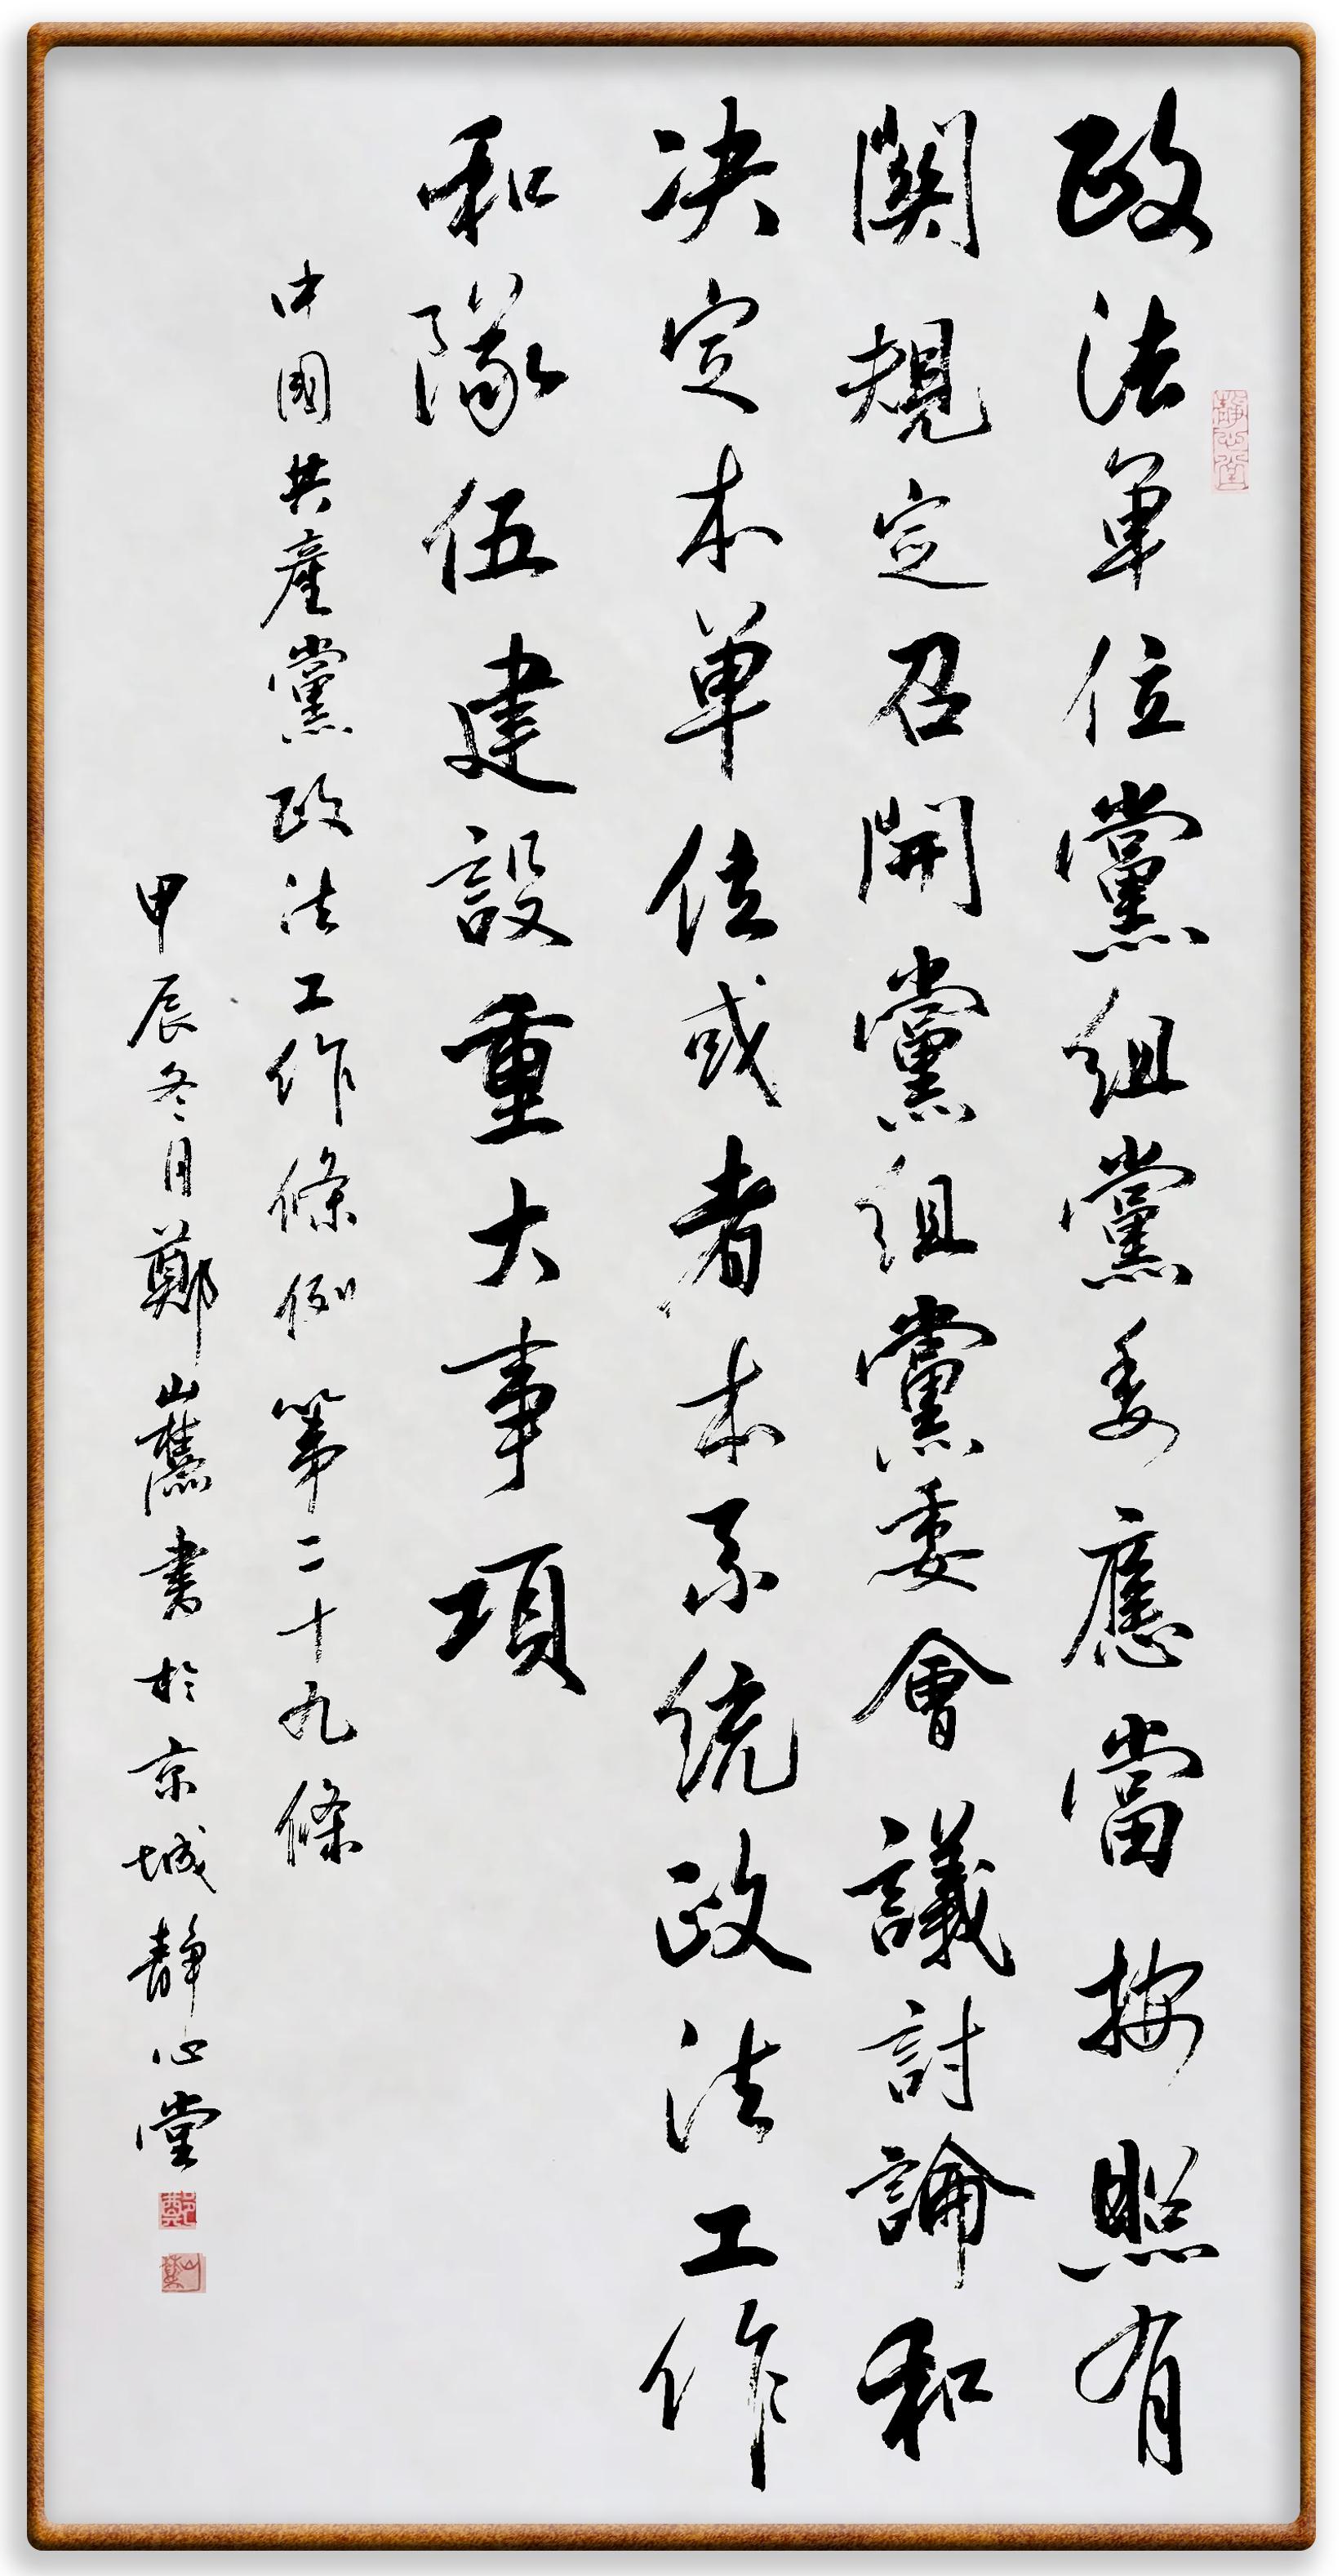 政法单位黨組黨委應當按照有
関規定召開黨組黨委會議討論和
决定本单位或者本系统政法工作
和隊伍建設重大事項
中國共產黨政法工作條例 第二十九條
甲辰冬月鄭山舊書於京城靜心堂
靜心堂
鄭